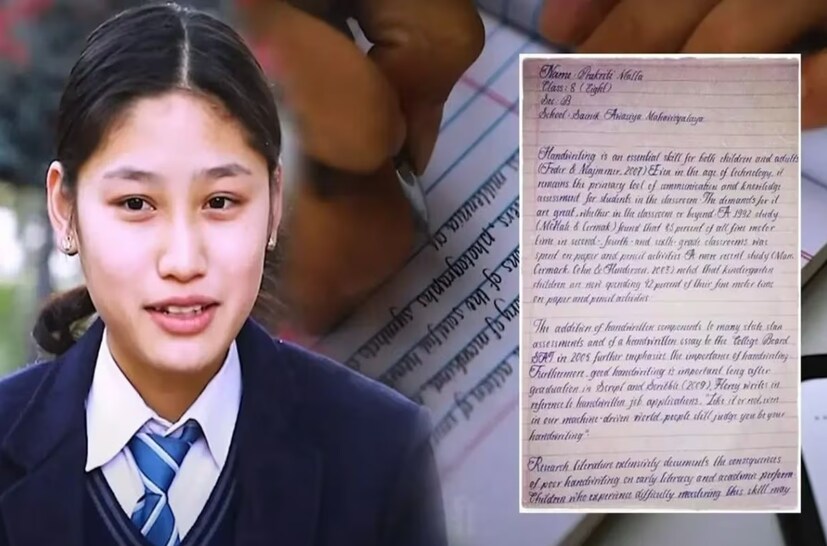 Name: Prakriti Malla
Class: 8 (Eight)
Sec: B
School - Sainik Awasiya Mahavidyalaya
Handwriting is an essential skill for both children and adults
(Feder & Majnemer, 2007). Even in the age of technology, it
remains the primary tool of communication and knowledge
assessment for students in the classroom. The demands for it
are great, whether in the classroom or beyond. A 1992 study
(McHale & Cermak) found that 85 percent of all fine motor
time in second-, fourth- and sixth-grade classrooms was
spent on paper and pencil activities. A more recent study (Marr,
Cermack, Cohn & Henderson, 2003) noted that kindergarten
children are now spending 42 percent of their fine motor time
on paper and pencil activities.
The addition of handwritten components to many state
assessments and of a handwritten essay to the College Board
SAT in 2005 further emphasis the importance of handwriting.
Furthermore, good handwriting is important long after
graduation. In Script and Scribble (2009), Florey writes in
reference to handwritten job applications, "Like it or not, even
in our machine-driven world, people still judge you by your
handwriting".
Research literature extensively documents the consequences
of poor handwriting on early literacy and academic perform
Children who experience difficulty mastering this skill may
millennia
photographs symbols
of the